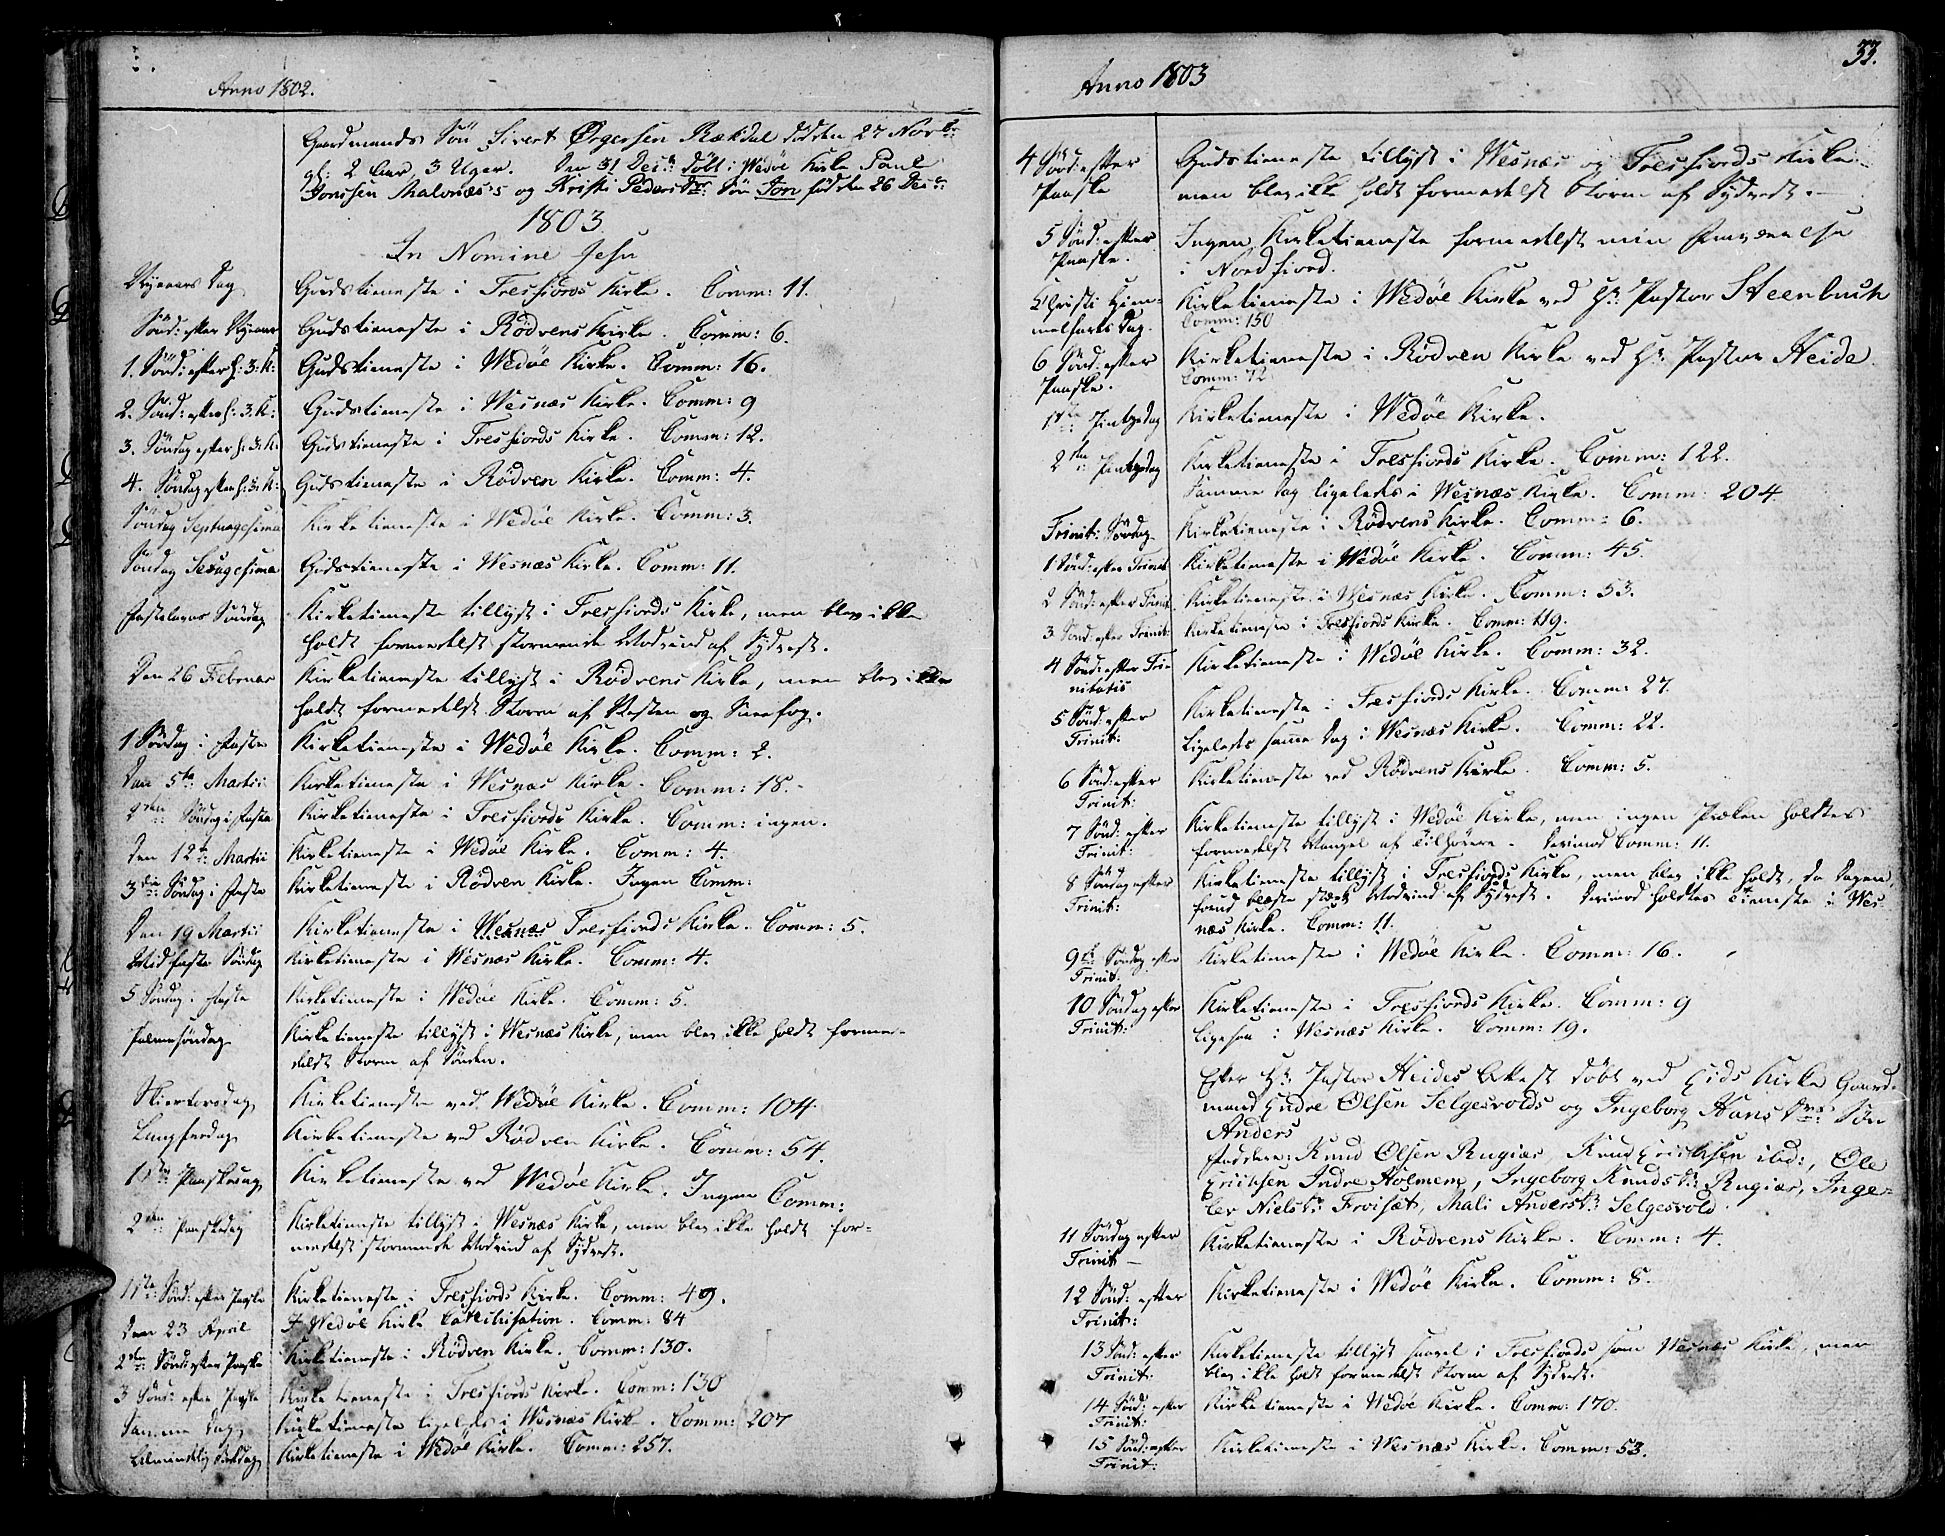 Anno 1802.
Gaardmands Søn Sivert Ørgersen Rækdal død den 27 Novbr:
gl: 2 Aar, 3 Uger. Den 31 Decr: døbt i Wedøe Kirke Poul
Jonssen Malonæss og Kristi Pedersdr: Søn Jon født den 26 Decr:
1803
In Nomine Jesu
Nyaars Dag Gudstieneste i Tresfiords Kirke. Comm: 11.
Sønd: efter Nyaar Gudstieneste i Rødvens Kirke. Comm: 6.
1. Sønd: efter h: 3: K: Gudstieneste i Wedøe Kirke. Comm: 16.
2. Sønd: efter h: 3: K: Gudstieneste i Wesnæs Kirke. Comm: 9
3. Søndag efter h: 3: K: Gudstieneste i Tresfiords Kirke. Comm: 12.
4. Søndag efter h: 3: K: Gudstieneste i Rødven Kirke. Comm: 4.
Søndag Septuagesima Kirketieneste i Wedøe Kirke. Comm: 3.
Søndag Sexagesima Gudstieneste i Wesnæs Kirke. Comm: 11.
Fastelavns Søndag Kirketieneste tillyst i Tresfiords Kirke, men blev ikke
holdt formedelst stormende Modvind af Sydvest.
Den 26 Februar Kirketieneste tillyst i Rødvens Kirke, men blev ikke
holdt formedelst Storm af Vesten og Sneefog.
1 Søndag i Faste Kirketieneste i Wedøe Kirke. Comm: 2.
Den 5te Martii Kirketieneste i Wesnæs Kirke. Comm: 18.
2den Søndag i Faste Kirketieneste i Tresfiords Kirke. Comm: ingen.
Den 12te Martii Kirketieneste i Wedøe Kirke. Comm: 4.
3die Søndag i Faste Kirketieneste i Rødven Kirke. Ingen Comm:
Den 19 Martii Kirketieneste i Wesnæs Tresfiords Kirke. Comm: 5.
Midfaste Søndag Kirketieneste i Wesnæs Kirke. Comm: 4.
5 Søndag i Faste Kirketieneste i Wedøe Kirke. Comm: 5.
Palmesøndag Kirketieneste tillyst i Wesnæs Kirke, men blev ikke holdt forme-
delst Storm af Sønden.
Skiertorsdag Kirketieneste ved Wedøe Kirke. Comm: 104
Langfredag Kirketieneste ved Rødven Kirke. Comm: 54.
1ste Paaskedag Kirketieneste ved Wedøe Kirke. Ingen Comm:
2den Paaskedag Kirketieneste tillyst i Wesnæs Kirke, men blev ikke holdt for-
medelst stormende Modvind af Sydvest.
1ste Sønd: efter Paaske Kirketieneste i Tresfiords Kirke. Comm: 49.
Den 23 April I Wedøe Kirke Catechisation. Comm: 84
2den Sønd: efter Paaske Kirketieneste i Rødven Kirke. Comm: 130.
3 Sønd: efter Paaske Kirketieneste i Tresfiords Kirke. Comm: 130
Samme Dag Kirketieneste ligeledes i Wesnæs Kirke. Comm: 207
Almindelig Bededag Kirketieneste i Wedøe Kirke. Comm: 257.
Anno 1803
33.
4 Sønd: efter Paaske Gudstieneste tillyst i Wesnæs og Tresfiords Kirke
men blev ikke holdt formedelst Storm af Sydvest.
5 Sønd: efter Paaske. Ingen Kirketieneste formedelst min Fraværelse
i Nordfiord.
Christi Himmelfarts Dag. Kirketieneste i Wedøe Kirke ved Hr: Pastor Steenbuch
Comm: 150
6 Sønd: efter Paaske. Kirketieneste i Rødven Kirke ved Hr: Pastor Heide
Comm: 72
1ste Pintsedag Kirketieneste i Wedøe Kirke.
2den Pintsedag Kirketieneste i Tresfiords Kirke. Comm: 122.
Samme Dag ligeledes i Wesnæs Kirke. Comm: 204.
Trinit: Søndag Kirketieneste i Rødvens Kirke. Comm: 6.
1 Sønd: efter Trinit Kirketieneste i Wedøe Kirke. Comm: 45.
2 Sønd: efter Trinit: Kirketieneste i Wesnæs Kirke. Comm: 53.
3 Sønd: efter Trinit: Kirketieneste i Tresfiords Kirke. Comm: 119.
4 Sønd: efter Trinitatis Kirketieneste i Wedøe Kirke. Comm: 32.
5 Sønd: efter Trinit: Kirketieneste i Tresfiords Kirke. Comm: 27.
Ligeledes samme Dag i Wesnæs Kirke. Comm: 22.
6 Sønd: efter Trinit: Kirketieneste ved Rødvens Kirke. Comm: 5.
7 Sønd: efter Trinit: Kirketieneste tillyst i Wedøe Kirke, men ingen Præken holdtes
formedelst Mangel af Tilhørere. Derimod Comm: 11.
8 Søndag efter Trinit: Kirketieneste tillyst i Tresfiords Kirke, men blev ikke holdt, da Dagen
forud blæste stærk Modvind af Sydvest. Derimod holdtes Tieneste i Wes-
næs Kirke. Comm: 11.
9de Søndag efter Trinit: Kirketieneste i Wedøe Kirke. Comm: 16.
10 Søndag efter Trinit: Kirketieneste i Tresfiords Kirke. Comm: 9
Ligesaa i Wesnæs Kirke. Comm: 19.
Efter Hr: Pastor Heides Attest døbt ved Eids Kirke Gaard-
mand Endre Olsen Selgesvolds og Ingeborg Hansdrs: Søn
Anders
Faddere: Knud Olsen Rugiær, Knud Erichsen ibid:, Ole
Erichsen Indre Holmem, Ingeborg Knudsdr: Rugiær, Inge-
lev Nielsdr Froisæt, Mali Andersdr: Selgesvold.
11 Søndag efter Trinit Kirketieneste i Rødvens Kirke. Comm: 4.
12 Sønd: efter Trinit: Kirketieneste i Wedøe Kirke. Comm: 8.
13 Sønd: efter Trinit: Kirketieneste tillyst saavel i Tresfiords som Wesnæs Kirke, men
blev ikke holdt formedelst Storm af Sydvest.
14 Sønd: efter Trinit: Kirketieneste i Wedøe Kirke. Comm: 170.
15 Sønd: efter Trinit: Kirketieneste i Wesnæs Kirke. Comm: 53.